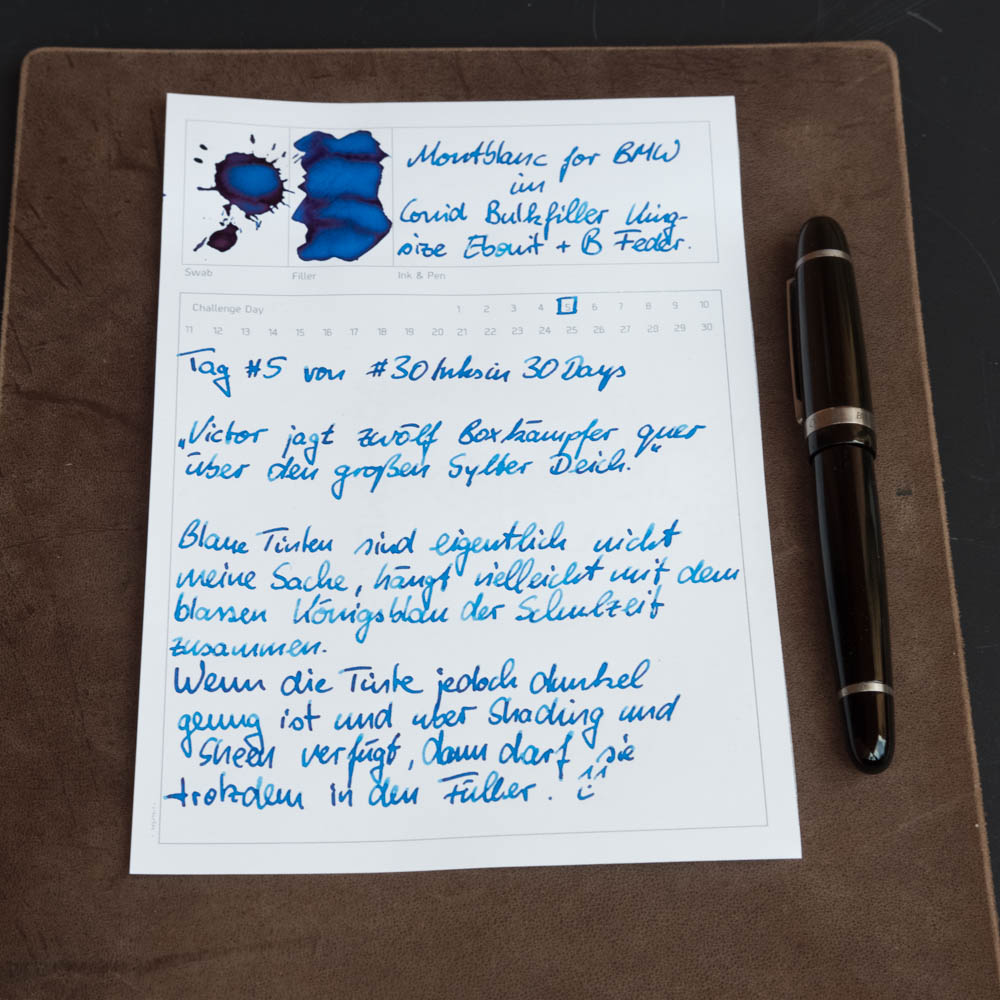 Montblanc for BMW
im
Conid Bulkfiller King-
size Ebonit + B Feder.
Swab
Filler
Ink & Pen
Challenge Day
1 2 3 4 5 6 7 8 9 10
11 12 13 14 15 16 17 18 19 20 21 22 23 24 25 26 27 28 29 30
Tag #5 von #30Inksin30Days
„Victor jagt zwölf Boxkämpfer quer
über den großen Sylter Deich."
Blaue Tinten sind eigentlich nicht
meine Sache, hängt vielleicht mit dem
blassen Königsblau der Schulzeit
zusammen.
Wenn die Tinte jedoch dunkel
genug ist und über Shading und
Sheen verfügt, dann darf sie
trotzdem in den Füller. ü